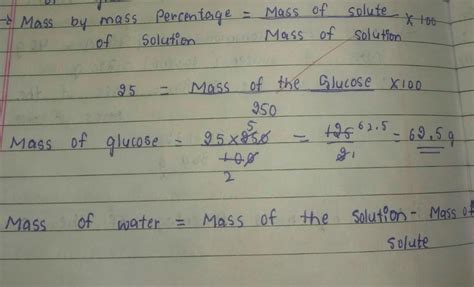 : Mass by mass Percentage = Mass of solute × 100
of Solution Mass of solution
25 = Mass of the Glucose ×100
250
Mass of glucose = 25×250 5 = 125 62.5 = 62.5 g
100 2
2 1
Mass of water = Mass of the solution - Mass of
solute